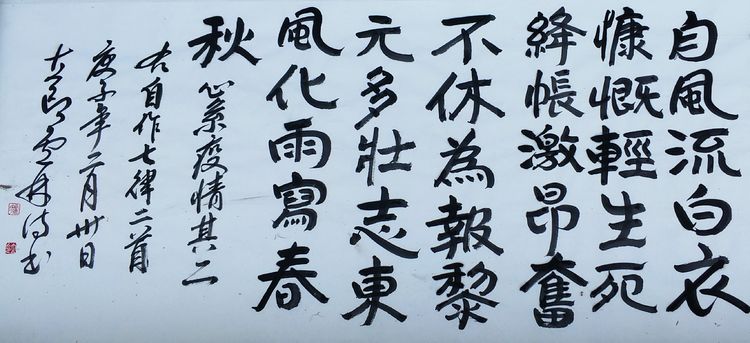 自風流白衣
慷慨輕生死
絳帳激昂奮
不休為報黎
元多壯志東
風化雨寫春
秋
心系疫情其二
右自作七律二首
庚子年二月卅日